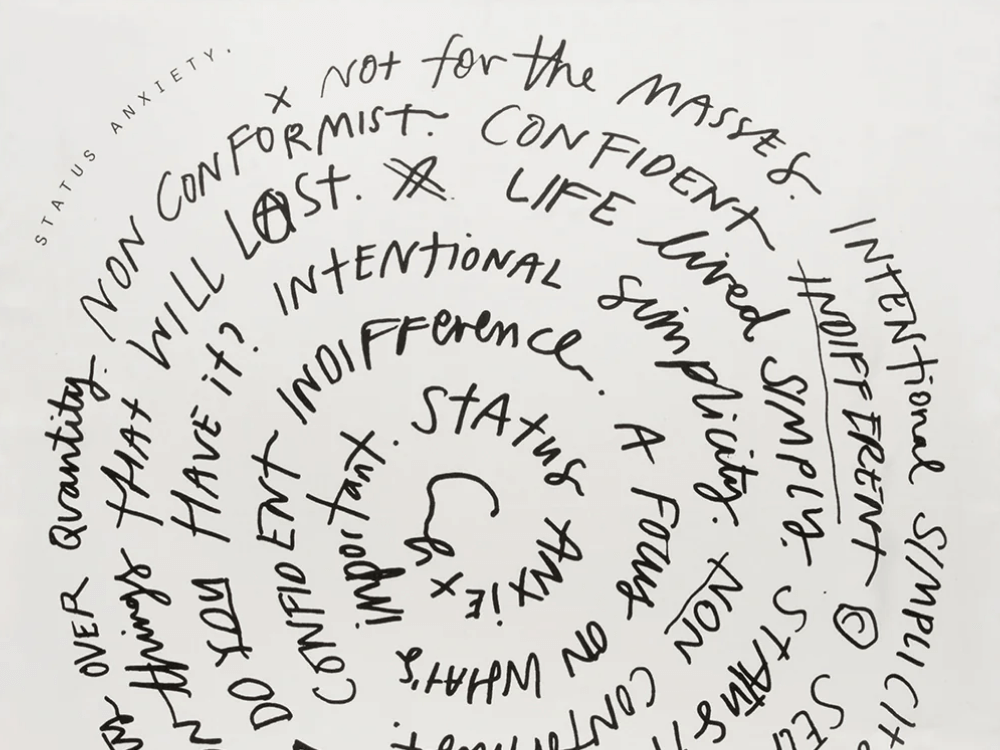 STATUS ANXIETY.
x Not for the MASSES.
INTENtional SIMPLICITY
OVER Quantity. NON CONFORMIST. CONFIDENT INDIFFERENT
things that WILL LAST. LIFE lived SIMPLY. STATUS
DO YOU HAVE it? INTENTIONAL simplicity. NON
CONFIDENT INDIFFerence. A Focus ON WHAT'S important.
STATUS ANXiEty